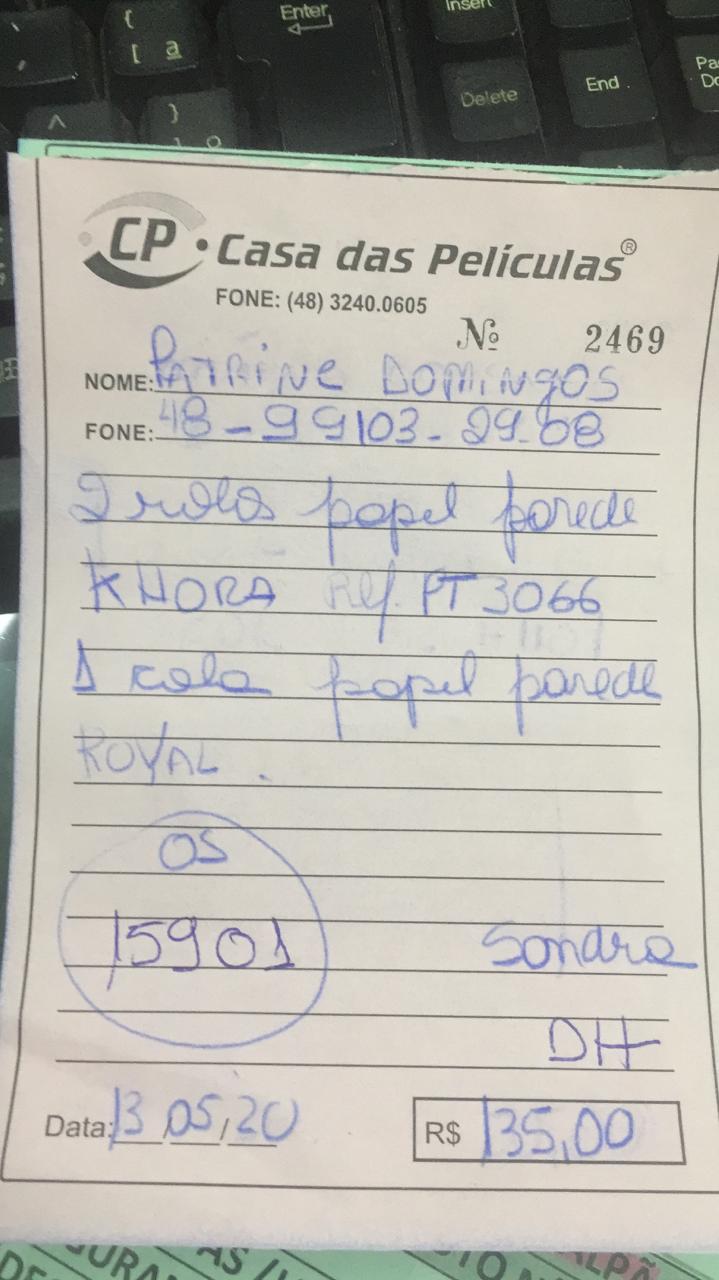 Enter
Insert
{
[ a
Delete
End
^
}
CP • Casa das Películas®
FONE: (48) 3240.0605
Nº 2469
NOME: PATRINE DOMINGOS
FONE: 48-99103-29.08
2 rolos papel parede
KHORA Ref. PT 3066
1 cola papel parede
ROYAL.
OS
15901
Sandra
DH
Data: 13/05/20
R$ 135,00